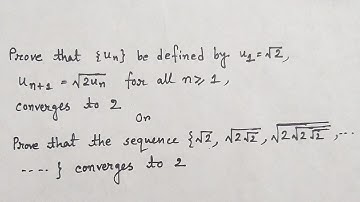 Prove that {uₙ} be defined by u₁=√2,
uₙ₊₁ = √(2uₙ) for all n⩾1,
converges to 2
On
Prove that the sequence {√2, √(2√2), √(2√(2√2)), ...
....} converges to 2